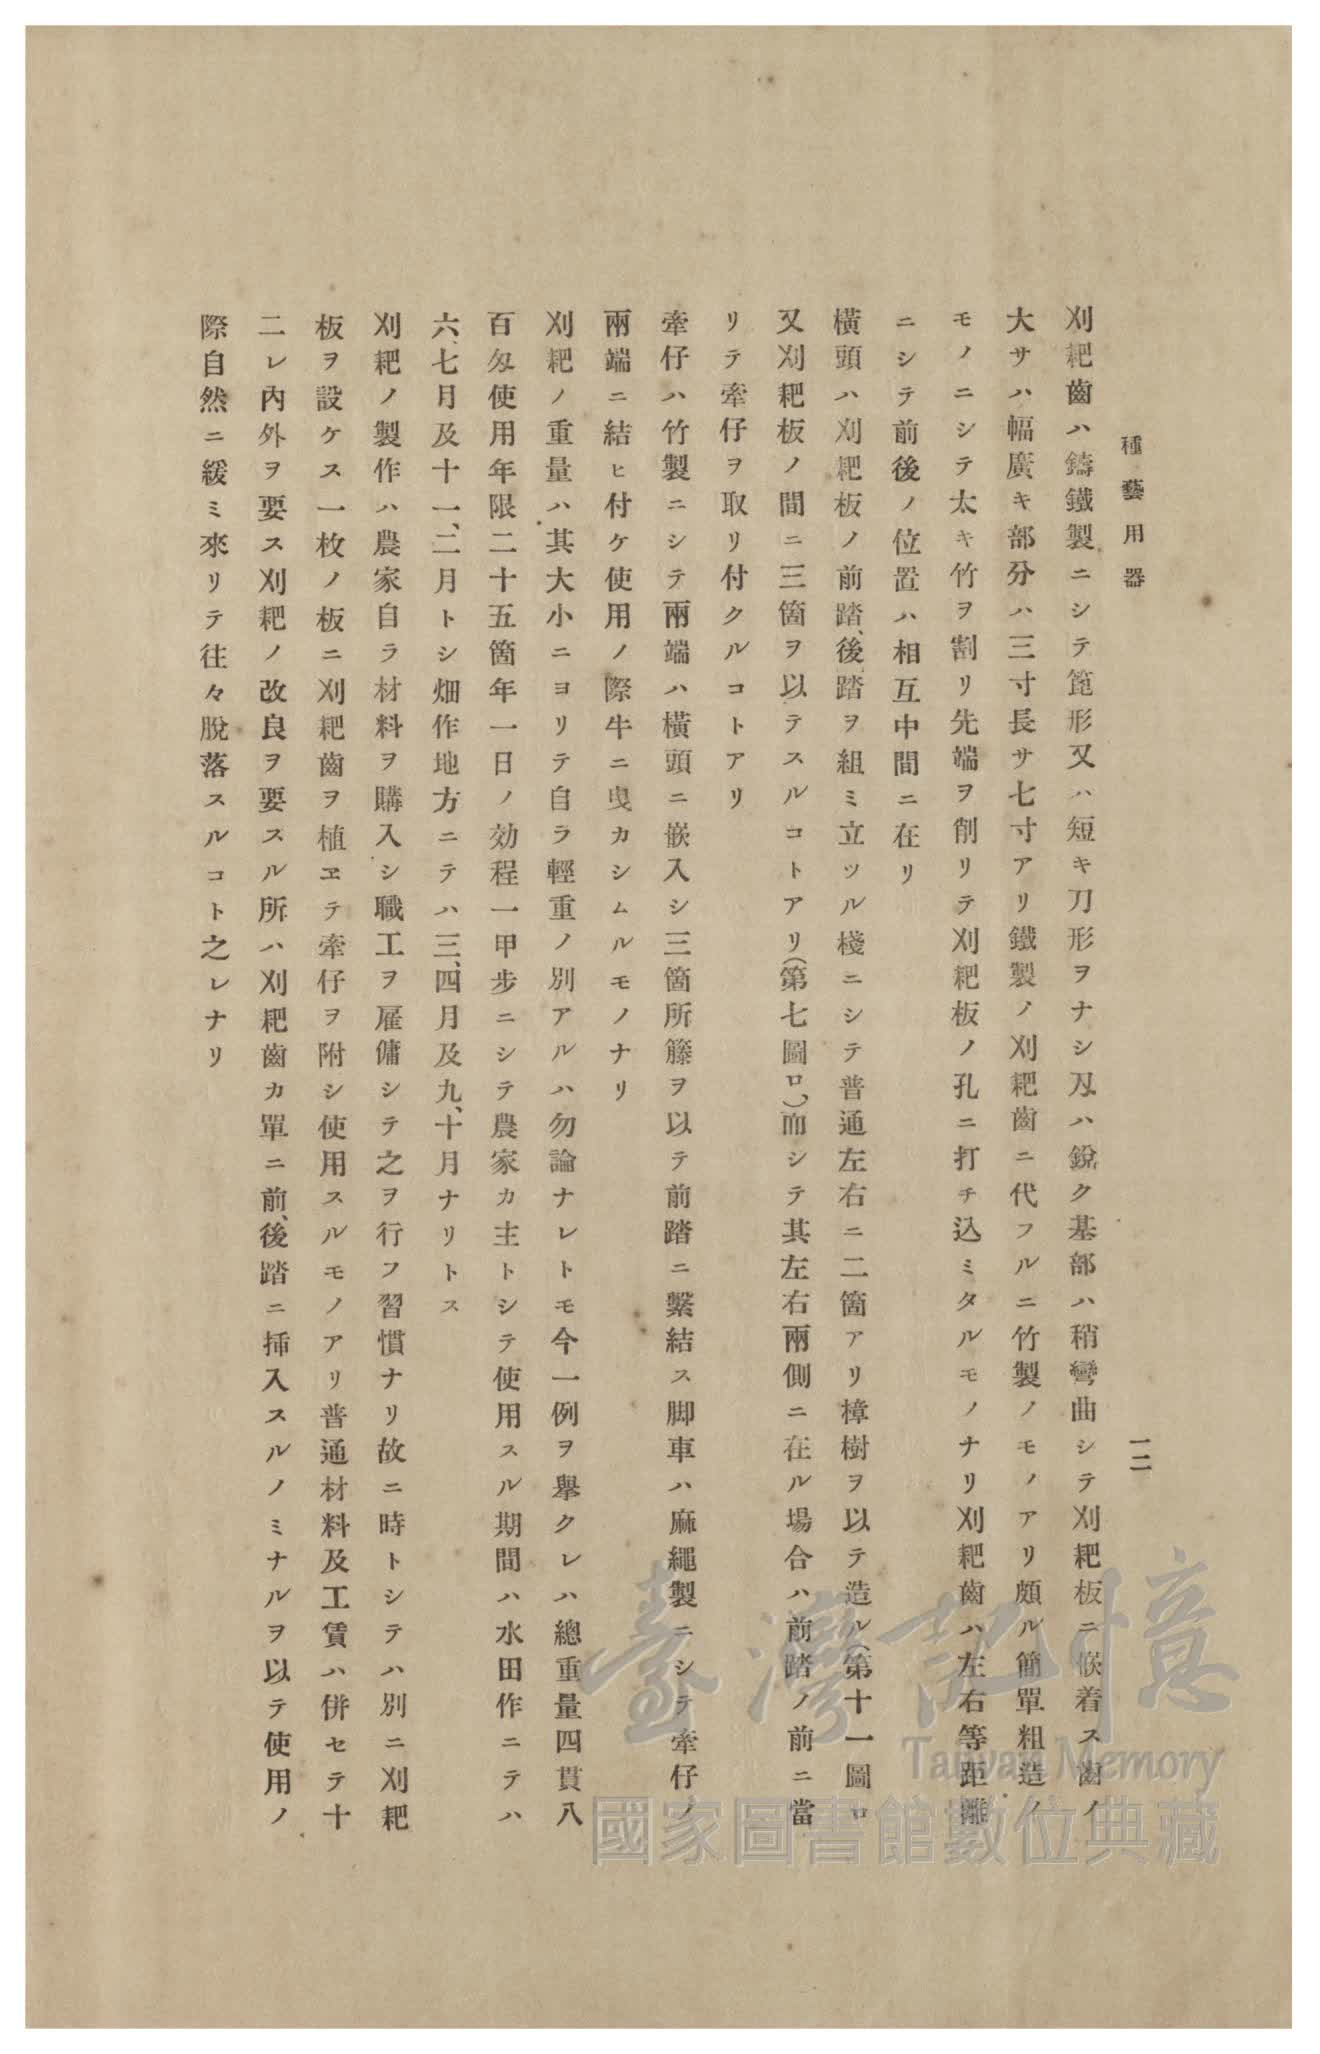 種藝用器
一二
刈耙齒ハ鑄鐵製ニシテ箆形又ハ短キ刀形ヲナシ刄ハ銳ク基部ハ稍彎曲シテ刈耙板ニ嵌着ス齒ノ
大サハ幅廣キ部分ハ三寸長サ七寸アリ鐵製ノ刈耙齒ニ代フルニ竹製ノモノアリ頗ル簡單粗造ノ
モノニシテ太キ竹ヲ割リ先端ヲ削リテ刈耙板ノ孔ニ打チ込ミタルモノナリ刈耙齒ハ左右等距離
ニシテ前後ノ位置ハ相互中間ニ在リ
橫頭ハ刈耙板ノ前踏、後踏ヲ組ミ立ツル棧ニシテ普通左右ニ二箇アリ樟樹ヲ以テ造ル(第十一圖ロ
又刈耙板ノ間ニ三箇ヲ以テスルコトアリ(第七圖ロ)而シテ其左右兩側ニ在ル場合ハ前踏ノ前ニ當
リテ牽仔ヲ取リ付クルコトアリ
牽仔ハ竹製ニシテ兩端ハ橫頭ニ嵌入シ三箇所籐ヲ以テ前踏ニ繫結ス脚車ハ麻繩製ニシテ牽仔ノ
兩端ニ結ヒ付ケ使用ノ際牛ニ曳カシムルモノナリ
刈耙ノ重量ハ其大小ニヨリテ自ラ輕重ノ別アルハ勿論ナレトモ今一例ヲ擧クレハ總重量四貫八
百匁使用年限二十五箇年一日ノ効程一甲步ニシテ農家カ主トシテ使用スル期間ハ水田作ニテハ
六、七月及十一、二月トシ畑作地方ニテハ三、四月及九、十月ナリトス
刈耙ノ製作ハ農家自ラ材料ヲ購入シ職工ヲ雇傭シテ之ヲ行フ習慣ナリ故ニ時トシテハ別ニ刈耙
板ヲ設ケス一枚ノ板ニ刈耙齒ヲ植ヱテ牽仔ヲ附シ使用スルモノアリ普通材料及工賃ハ併セテ十
二レ內外ヲ要ス刈耙ノ改良ヲ要スル所ハ刈耙齒カ單ニ前、後踏ニ挿入スルノミナルヲ以テ使用ノ
際自然ニ緩ミ來リテ往々脫落スルコト之レナリ
臺灣記憶
Taiwan Memory
國家圖書館數位典藏